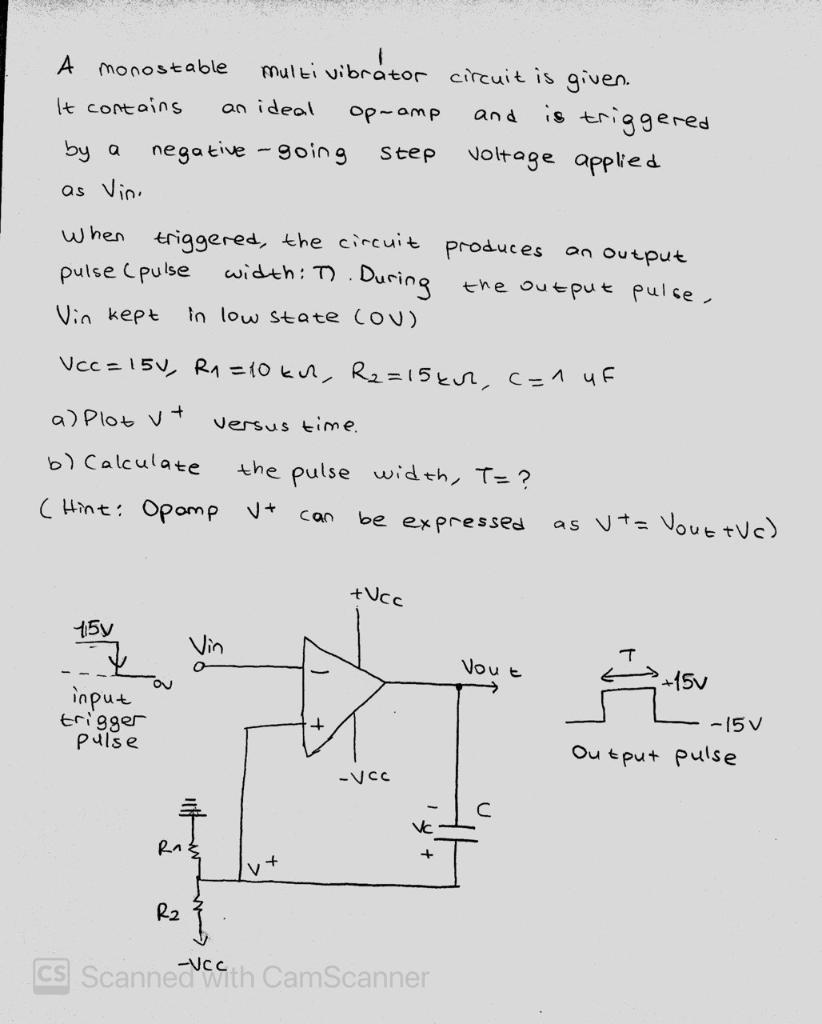 A monostable multivibrator circuit is given.
It contains an ideal op-amp and is triggered
by a negative-going step voltage applied
as Vin.
When triggered, the circuit produces an output
pulse (pulse width: T). During the output pulse,
Vin kept in low state (0V)
Vcc = 15V, R1 = 10 kΩ, R2 = 15 kΩ, C = 1 uF
a) Plot V+ versus time.
b) Calculate the pulse width, T = ?
(Hint: Opamp V+ can be expressed as V+ = Vout + Vc)
+Vcc
15V
Vin
-
Vout
T
+15V
0V
input
trigger
pulse
+
-15V
Output pulse
-Vcc
-
C
Vc
+
R1
V+
R2
-Vcc
CS Scanned with CamScanner